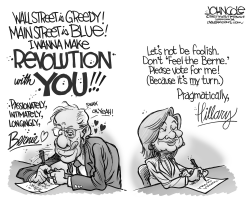 WALL STREET is GREEDY!
MAIN STREET is BLUE!
I WANNA MAKE
REVOLUTION
with YOU!!!
PASSIONATELY,
INTIMATELY,
LONGINGLY,
Bernie
OH YEAH!
JOHN COLE
Let's not be foolish.
Don't "Feel the Berne."
Please vote for me!
(Because it's my turn.)
Pragmatically,
Hillary